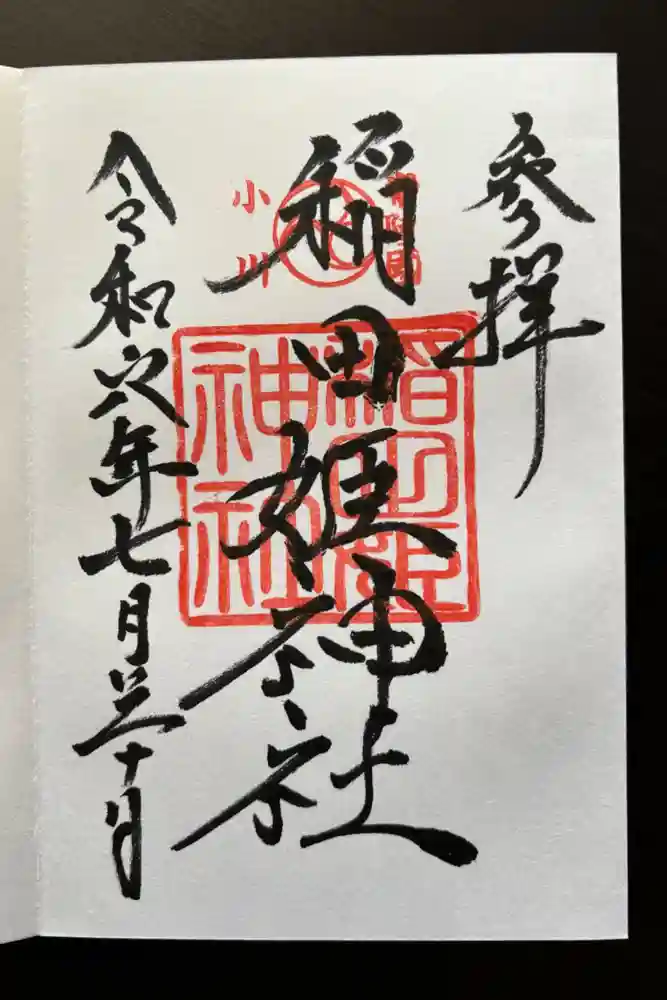 参拝
稲田姫神社
小川
稲田姫
神社
令和六年七月三十日